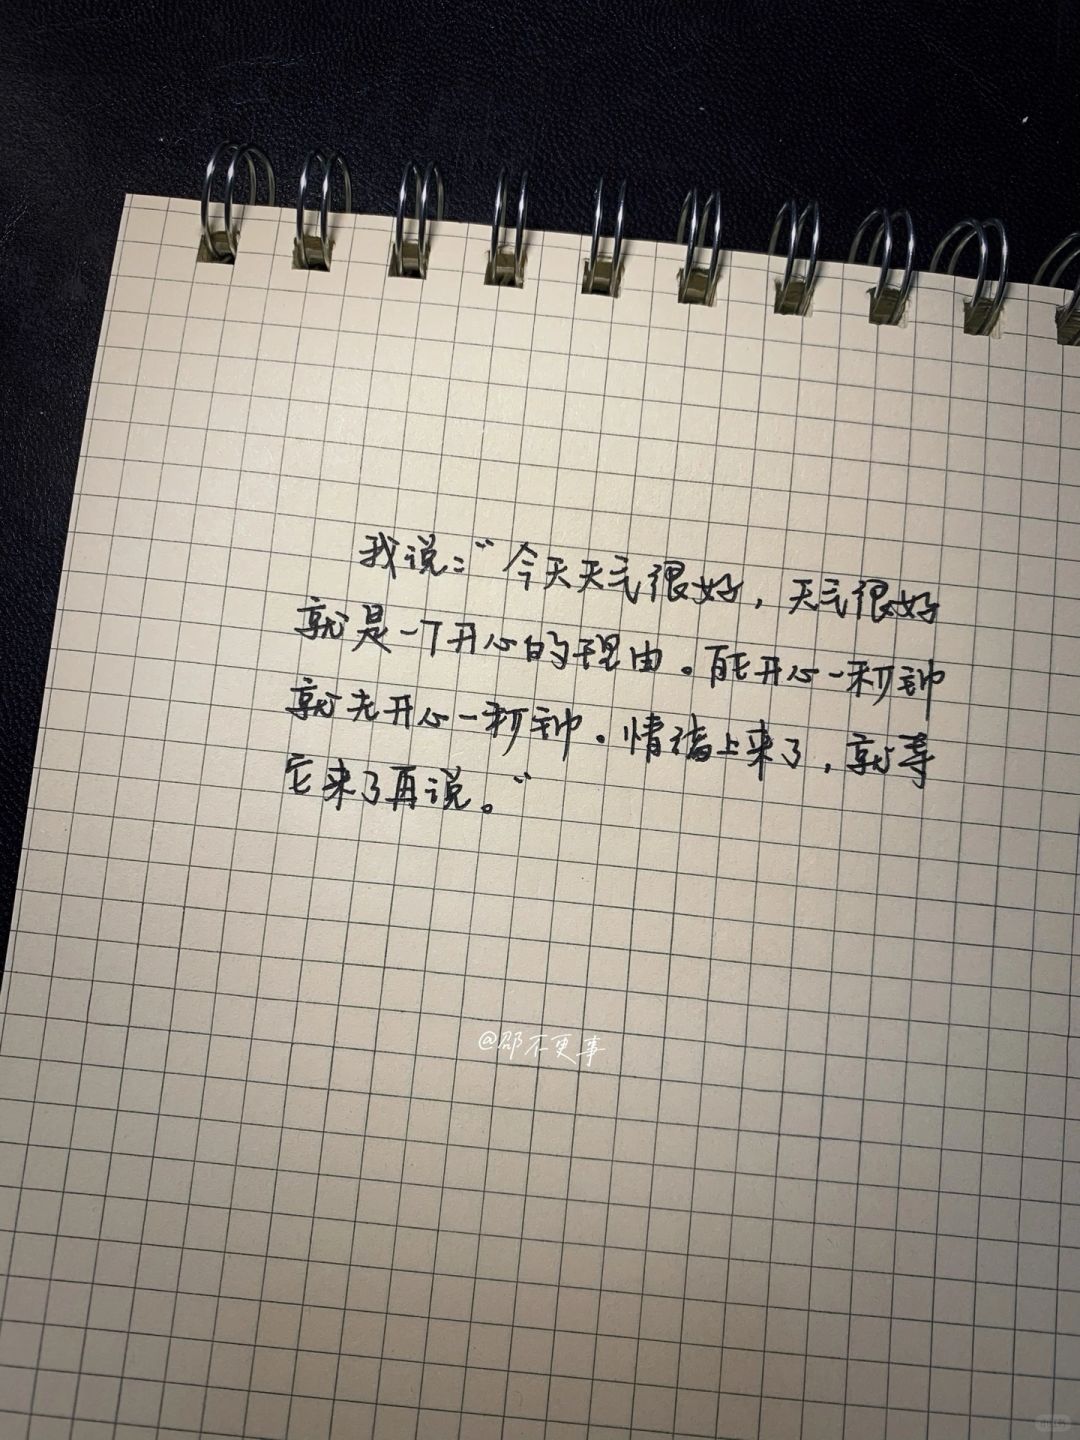 我说：“今天天气很好，天气很好
就是一个开心的理由。能开心一秒钟
就先开心一秒钟。情绪上来了，就等
它来了再说。”
@邵不更事